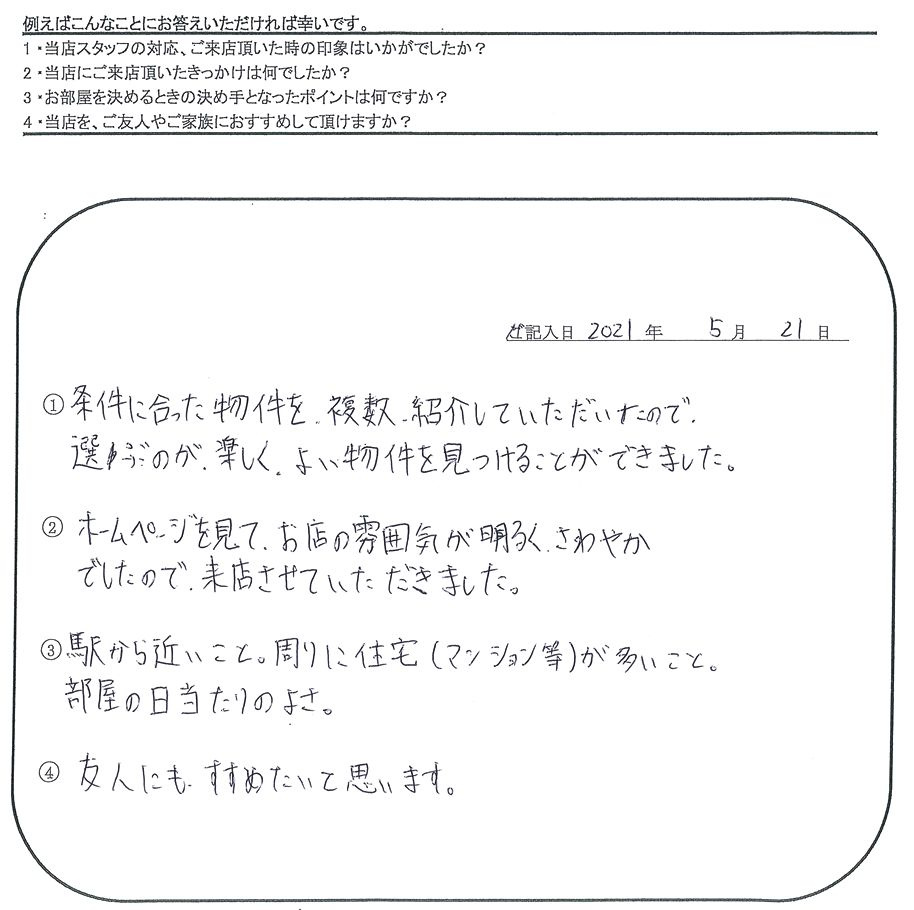 例えばこんなことにお答えいただければ幸いです。
1・当店スタッフの対応、ご来店頂いた時の印象はいかがでしたか？
2・当店にご来店頂いたきっかけは何でしたか？
3・お部屋を決めるときの決め手となったポイントは何ですか？
4・当店を、ご友人やご家族におすすめして頂けますか？
ご記入日 2021 年 5 月 21 日
① 条件に合った物件を、複数、紹介していただいたので、
選ぶのが、楽しく、よい物件を見つけることができました。
② ホームページを見て、お店の雰囲気が明るく、さわやか
でしたので、来店させていただきました。
③ 駅から近いこと。周りに住宅(マンション等)が多いこと。
部屋の日当たりのよさ。
④ 友人にも、すすめたいと思います。